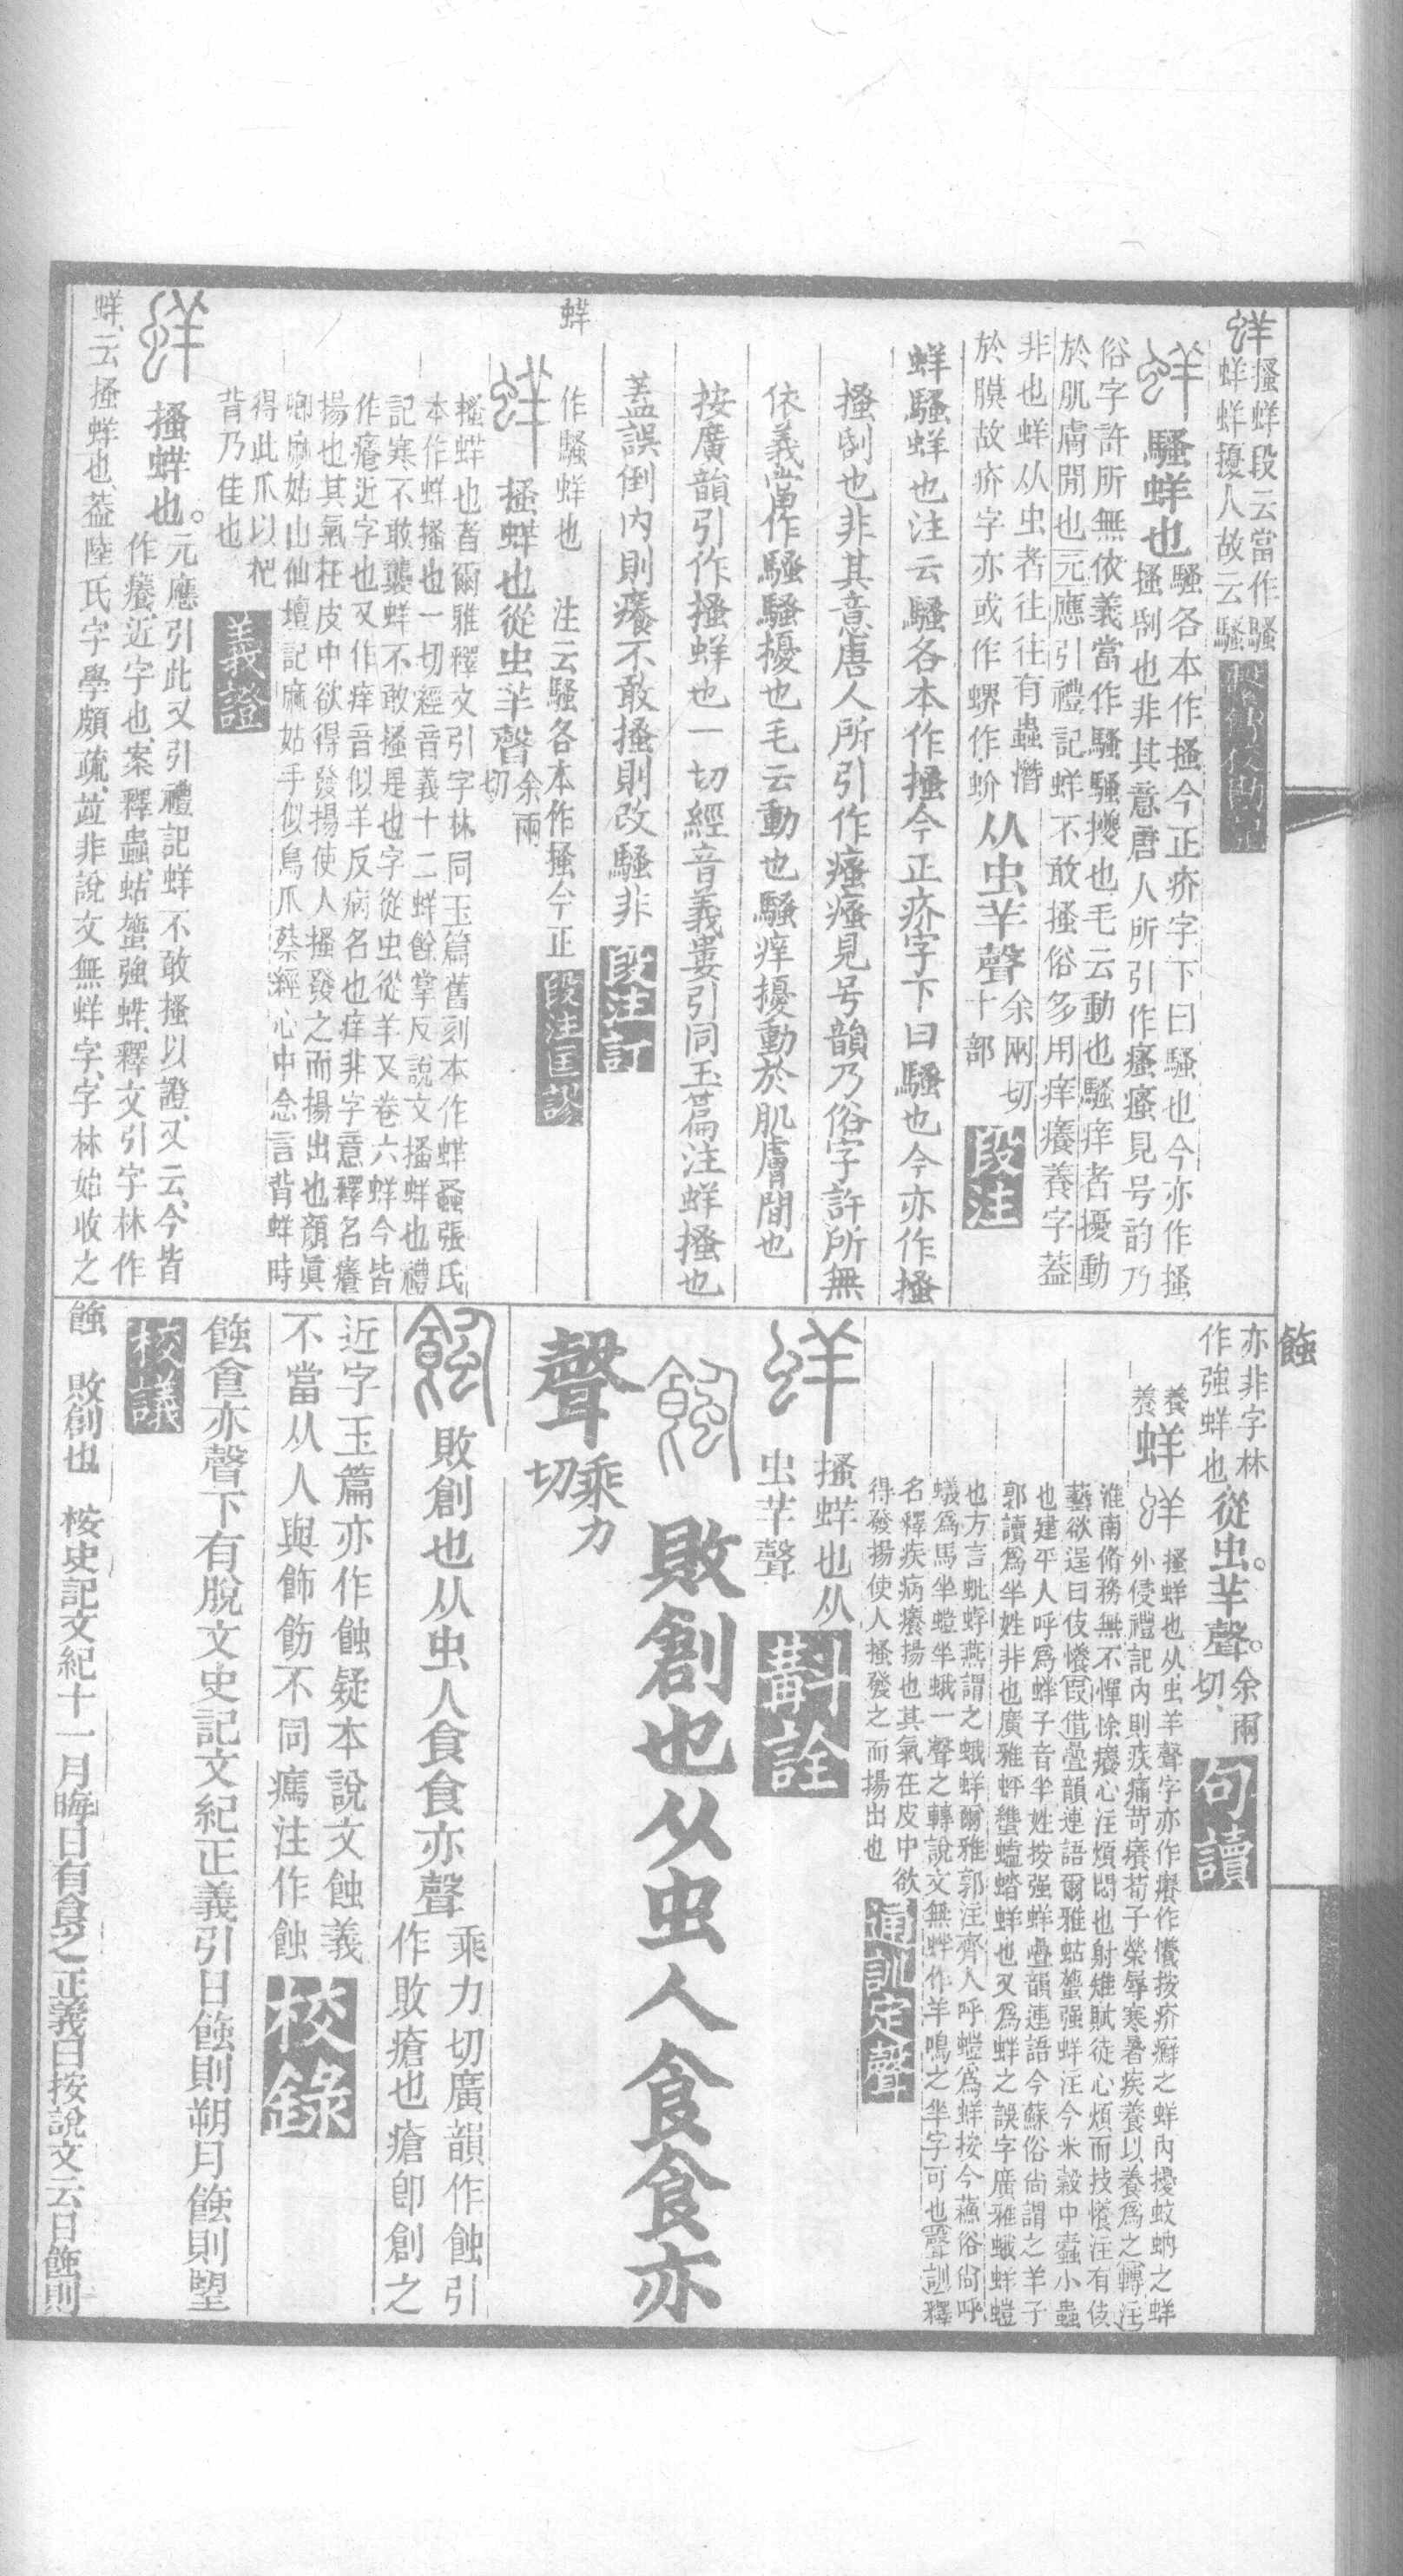 蛘
搔蛘段云當作騷
蛘蛘擾人故云騷
蛘
騷蛘也
騷各本作搔今正疥字下曰騷也今亦作搔
搔刮也非其意唐人所引作瘙瘙見号韵乃
俗字許所無依義當作騷騷擾也毛云動也騷痒者擾動
於肌膚閒也元應引禮記蛘不敢搔俗多用痒癢養字葢
非也蛘从虫者往往有蟲潛
於膜故疥字亦或作螦作蚧
从虫羊聲
余兩切
十部
段注
蛘騷蛘也注云騷各本作搔今正疥字下曰騷也今亦作搔
搔刮也非其意唐人所引作瘙瘙見号韻乃俗字許所無
依義當作騷騷擾也毛云動也騷痒擾動於肌膚間也
按廣韻引作搔蛘也一切經音義婁引同玉篇注蛘搔也
葢誤倒內則癢不敢搔則改騷非
段注訂
蛘
作騷蛘也 注云騷各本作搔今正
段注匡謬
蛘
搔蛘也從虫羊聲
余兩
切
搔蛘也者爾雅釋文引字林同玉篇舊刻本作蛘蝨張氏
本作蛘搔也一切經音義十二蛘餘掌反說文搔蛘也禮
記寒不敢襲蛘不敢搔是也字從虫從羊又卷六蛘今皆
作癢近字也又作痒音似羊反病名也痒非字意釋名癢
揚也其氣在皮中欲得發揚使人搔發之而揚出也顏眞
卿麻姑山仙壇記麻姑手似鳥爪蔡經心中念言背蛘時
得此爪以杷
背乃佳也
義證
蛘
搔蛘也。
元應引此又引禮記蛘不敢搔以證、又云、今皆
作癢、近字也、案釋蟲、蛄𧒒強蛘、釋文引字林作
蛘、云搔蛘也、葢陸氏字學頗疏、竝非說文無蛘字、字林始收之
蝕
亦非字林
作強蛘也
從虫。羊聲。
余兩
切、
句讀
養
養
蛘
蛘
搔蛘也从虫羊聲字亦作癢作懩按疥癬之蛘內擾蚊蚋之蛘
外侵禮記內則疾痛苛癢荀子榮辱寒暑疾養以養爲之轉注
淮南脩務無不憚悇癢心注煩悶也射雉賦徒心煩而技懩注有伎
藝欲逞曰伎懩叚借疊韻連語爾雅蛄𧒒强蛘注今米穀中蠹小蟲
也建平人呼爲蛘子音羋姓按强蛘疊韻連語今蘇俗尙謂之羊子
郭讀爲羋姓非也廣雅蛢䗪蝔蛘也又爲蛘之誤字廣雅蛾蛘螘
也方言蚍蜉燕謂之蛾蛘爾雅郭注齊人呼螘爲蛘按今蘇俗尙呼
蟻爲馬羋螘羋蛾一聲之轉說文無蛘作羊鳴之羋字可也聲訓釋
名釋疾病癢揚也其氣在皮中欲
得發揚使人搔發之而揚出也
通訓定聲
蛘
搔蛘也从
虫羊聲
斠詮
敗創也从虫人食食亦
聲
乘力
切
敗創也从虫人食食亦聲
乘力切廣韻作蝕引
作敗瘡也瘡卽創之
近字玉篇亦作蝕疑本說文蝕義
不當从人與飾飭不同癘注作蝕
校錄
蝕食亦聲下有脫文史記文紀正義引日蝕則朔月蝕則望
校議
蝕 敗創也 桉史記文紀十一月晦日有食之正義曰按說文云日蝕則